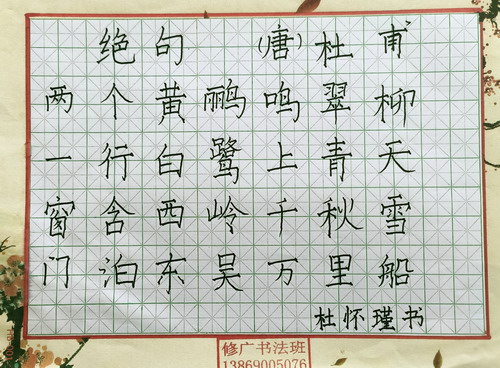 绝句 (唐)杜甫
两个黄鹂鸣翠柳
一行白鹭上青天
窗含西岭千秋雪
门泊东吴万里船
杜怀瑾书
修广书法班
13869005076